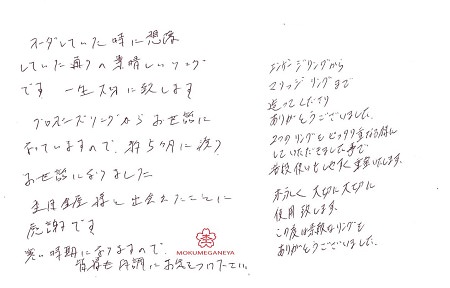 オーダしていた時に想像
していた通りの素晴しいリング
です 一生大切に致します
プロポーズリングからお世話に
なっていますので、約5ヶ月に渡り
お世話になりました
杢目金屋様と出会えたことに
感謝です
寒い時期になりますので、
皆様も体調にお気をつけて下さい
MOKUMEGANEYA
エンゲージリングから
マリッジリングまで
造ってくださり
ありがとうございました。
2つのリングをピッタリ重なる様に
していただきました事で
普段使いもしやすく重宝いたします。
末永しく 大切に大切に
使用致します。
この度は素敵なリングを
ありがとうございました。